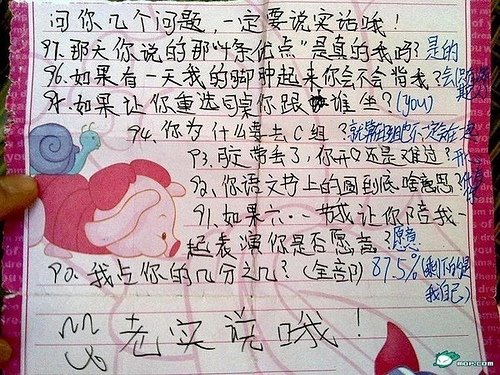 问你几个问题,一定要说实话哦!
97.那天你说的那"十条优点"是真的我吗?是的
96.如果有一天我的脚肿起来你会不会背我?会
95.如果让你重选同桌你跟谁坐?(you)
94.你为什么要去C组?
93.戒指带丢了,你开心还是难过?
92.你语文书上的画到底啥意思?
91.如果六·一节我让你陪我一
起表演你是否愿意?愿意
90.我占你的几分之几?(全部)87.5%(剩下的是
我自己)
老实说哦!
MOP.COM